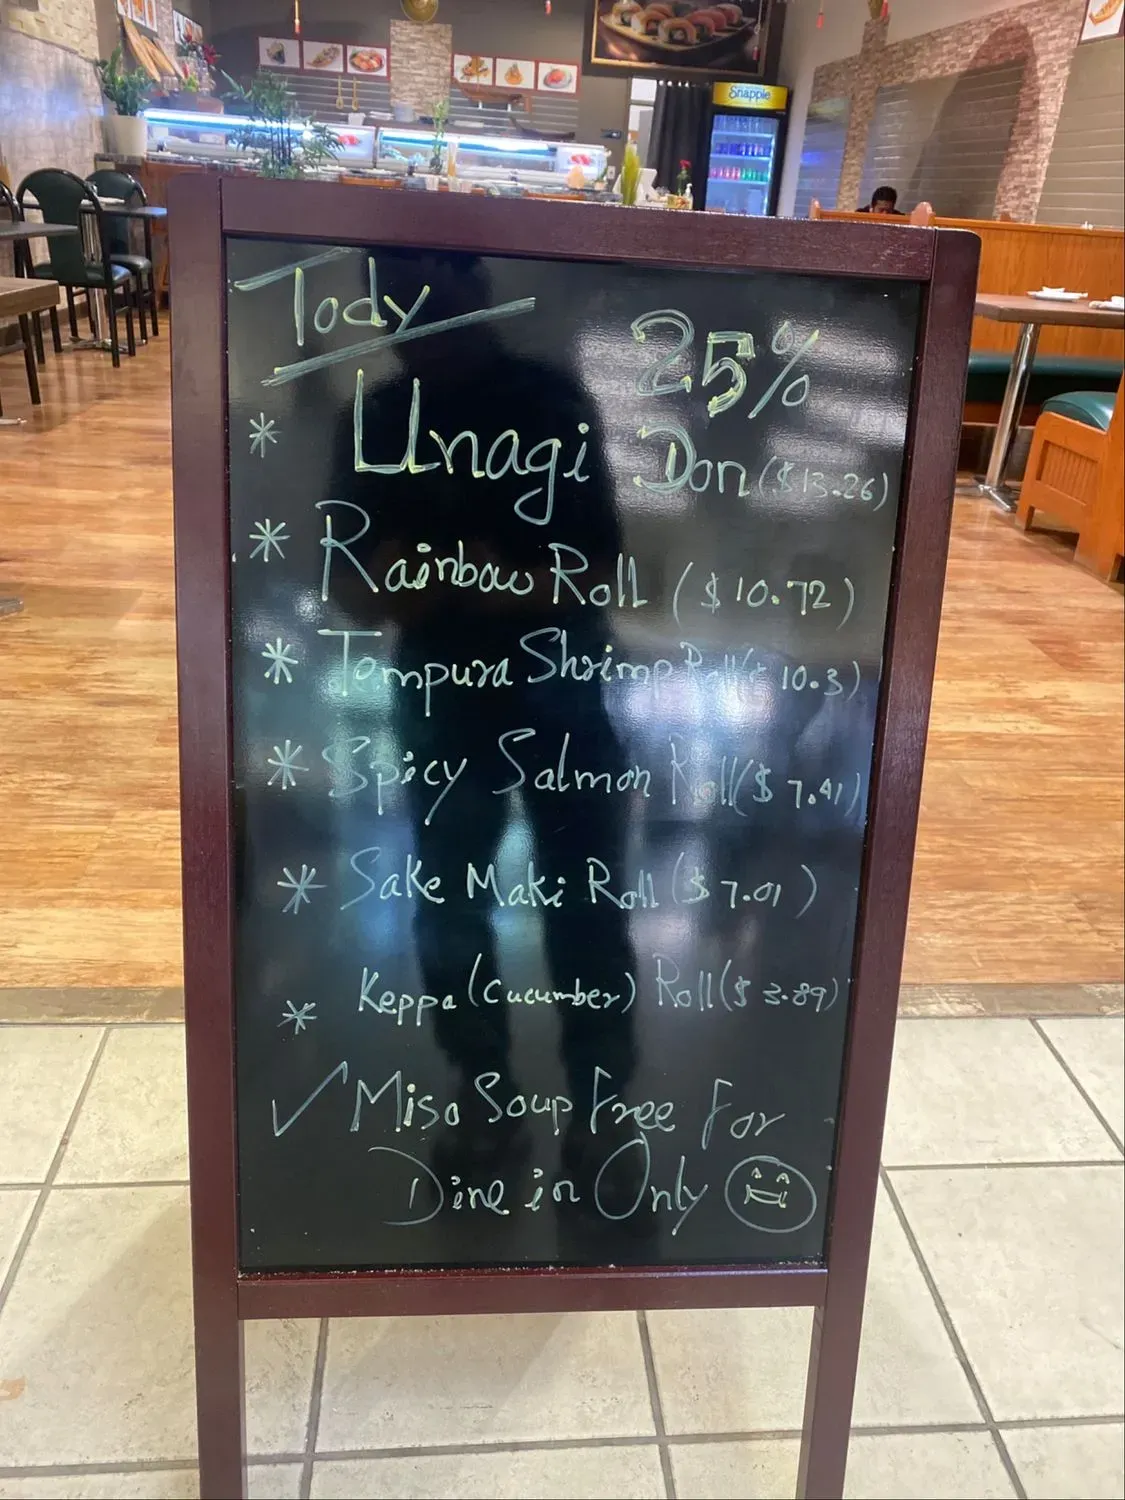 Snapple
Tody
25%
* Unagi Don ($13.26)
* Rainbow Roll ($10.72)
* Tempura Shrimp Roll ($10.3)
* Spicy Salmon Roll ($7.41)
* Sake Maki Roll ($7.01)
* Keppa (Cucumber) Roll ($3.89)
✓ Miso Soup Free For
Dine in Only